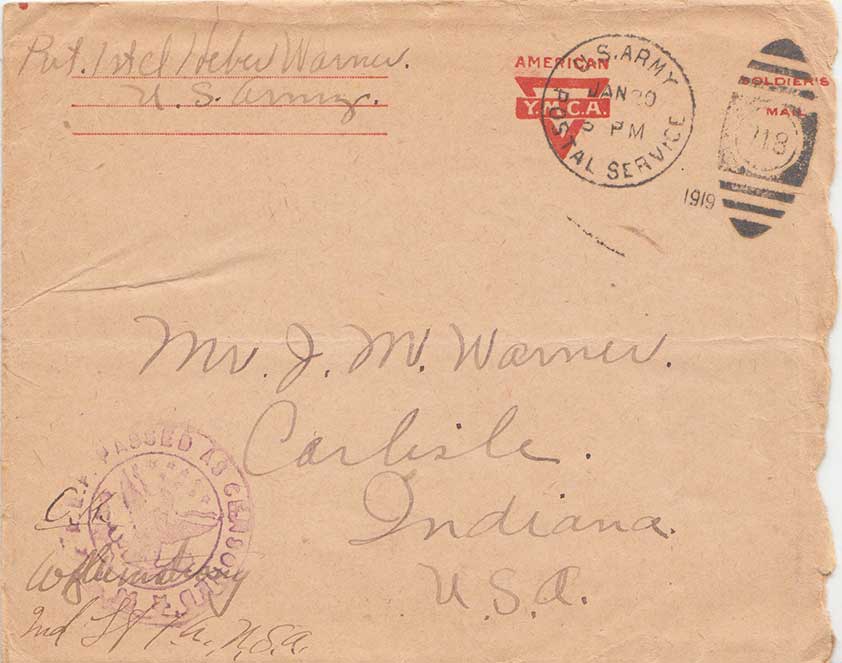 Pvt. 1st cl Heber Warner.
U. S. Army.
AMERICAN
Y.M.C.A.
U.S. ARMY
POSTAL SERVICE
JAN 20
PM
1919
SOLDIER'S
MAIL
Mr. J. M. Warner.
Carlisle.
Indiana.
U.S.A.
PASSED AS CENSORED
2nd Lt U.S.A.